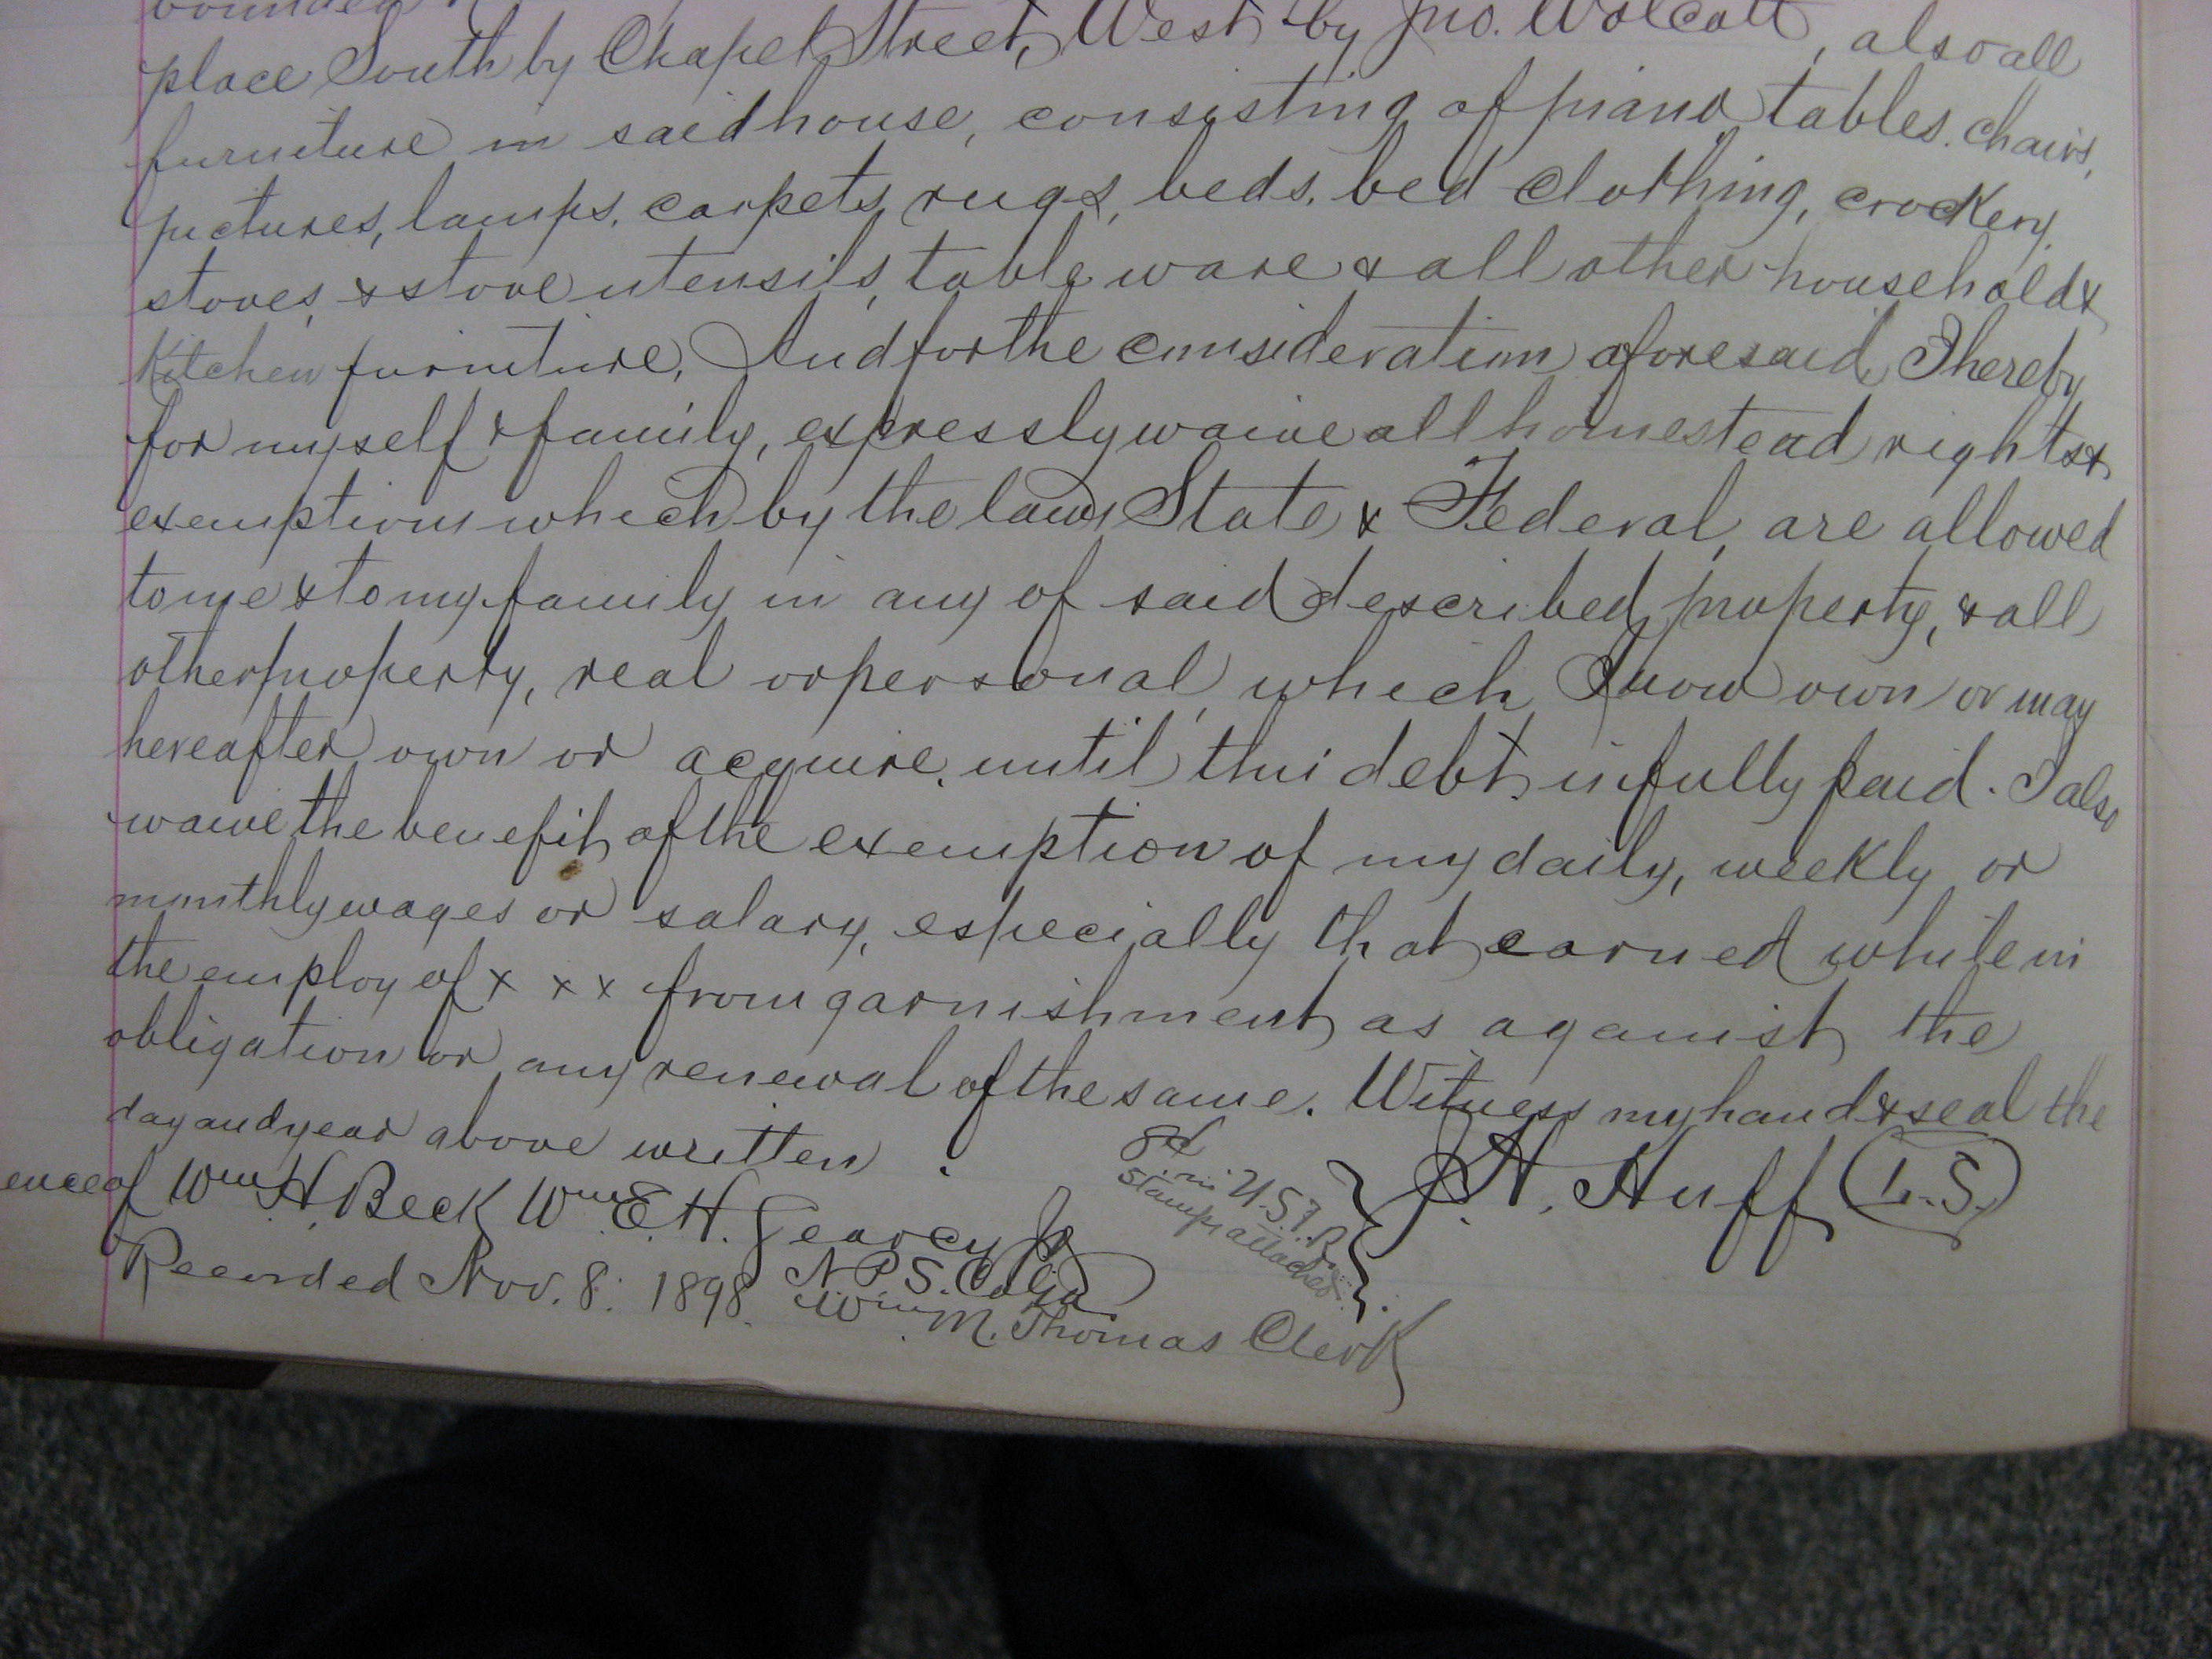 bounded
place South by Chapel Street, West by Jno. Wolcott, also all
furniture in said house, consisting of piano, tables, chairs,
pictures, lamps, carpets, rugs, beds, bed clothing, crockery,
stoves, & stove utensils, table ware & all other household &
Kitchen furniture. And for the consideration aforesaid, I hereby
for myself & family, expressly waive all homestead rights &
exemptions which by the laws, State & Federal, are allowed
to me & to my family in any of said described property, & all
other property, real or personal, which I now own or may
hereafter own or acquire, until this debt is fully paid. I also
waive the benefit of the exemption of my daily, weekly or
monthly wages or salary, especially that earned while in
the employ of x x x from garnishment as against the
obligation or any renewal of the same. Witness my hand & seal the
day and year above written.
8¢ in U.S.I.R. stamps attached } J. H. Huff (L.S.)
ence of Wm H. Beck Wm E. H. Searcy Jr
N P S. Co Ga
Recorded Nov. 8. 1898. Wm M. Thomas Clerk